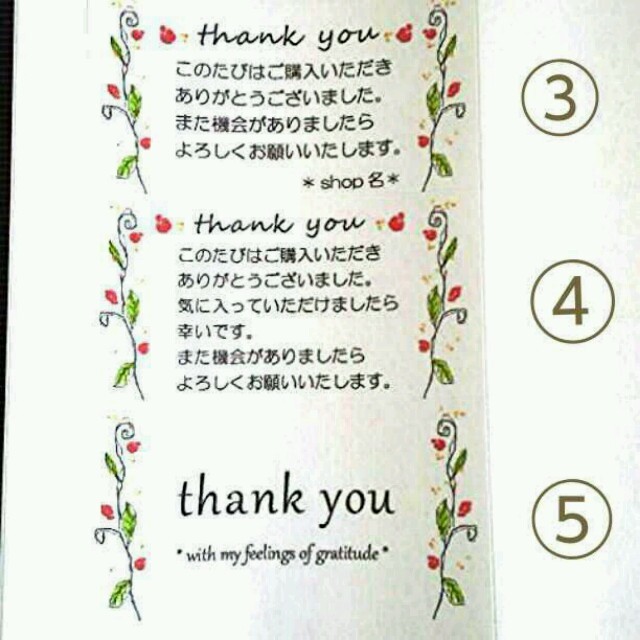 thank you
このたびはご購入いただき
ありがとうございました。
また機会がありましたら
よろしくお願いいたします。
＊shop名＊
③
thank you
このたびはご購入いただき
ありがとうございました。
気に入っていただけましたら
幸いです。
また機会がありましたら
よろしくお願いいたします。
④
thank you
*with my feelings of gratitude*
⑤